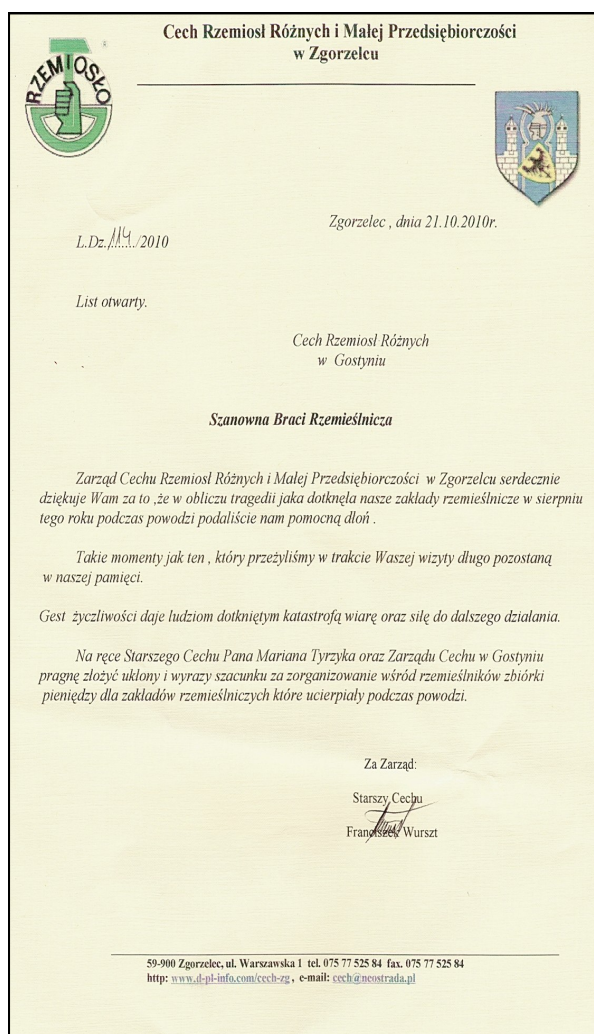 Cech Rzemiosł Różnych i Małej Przedsiębiorczości
w Zgorzelcu
RZEMIOSŁO
®
Zgorzelec , dnia 21.10.2010r.
L.Dz.114/2010
List otwarty.
Cech Rzemiosł Różnych
w Gostyniu
Szanowna Braci Rzemieślnicza
Zarząd Cechu Rzemiosł Różnych i Małej Przedsiębiorczości w Zgorzelcu serdecznie
dziękuje Wam za to ,że w obliczu tragedii jaka dotknęła nasze zakłady rzemieślnicze w sierpniu
tego roku podczas powodzi podaliście nam pomocną dłoń .
Takie momenty jak ten , który przeżyliśmy w trakcie Waszej wizyty długo pozostaną
w naszej pamięci.
Gest życzliwości daje ludziom dotkniętym katastrofą wiarę oraz siłę do dalszego działania.
Na ręce Starszego Cechu Pana Mariana Tyrzyka oraz Zarządu Cechu w Gostyniu
pragnę złożyć ukłony i wyrazy szacunku za zorganizowanie wśród rzemieślników zbiórki
pieniędzy dla zakładów rzemieślniczych które ucierpiały podczas powodzi.
Za Zarząd:
Starszy Cechu
Franciszek Wurszt
59-900 Zgorzelec, ul. Warszawska 1 tel. 075 77 525 84 fax. 075 77 525 84
http: www.d-pl-info.com/cech-zg , e-mail: cech@neostrada.pl